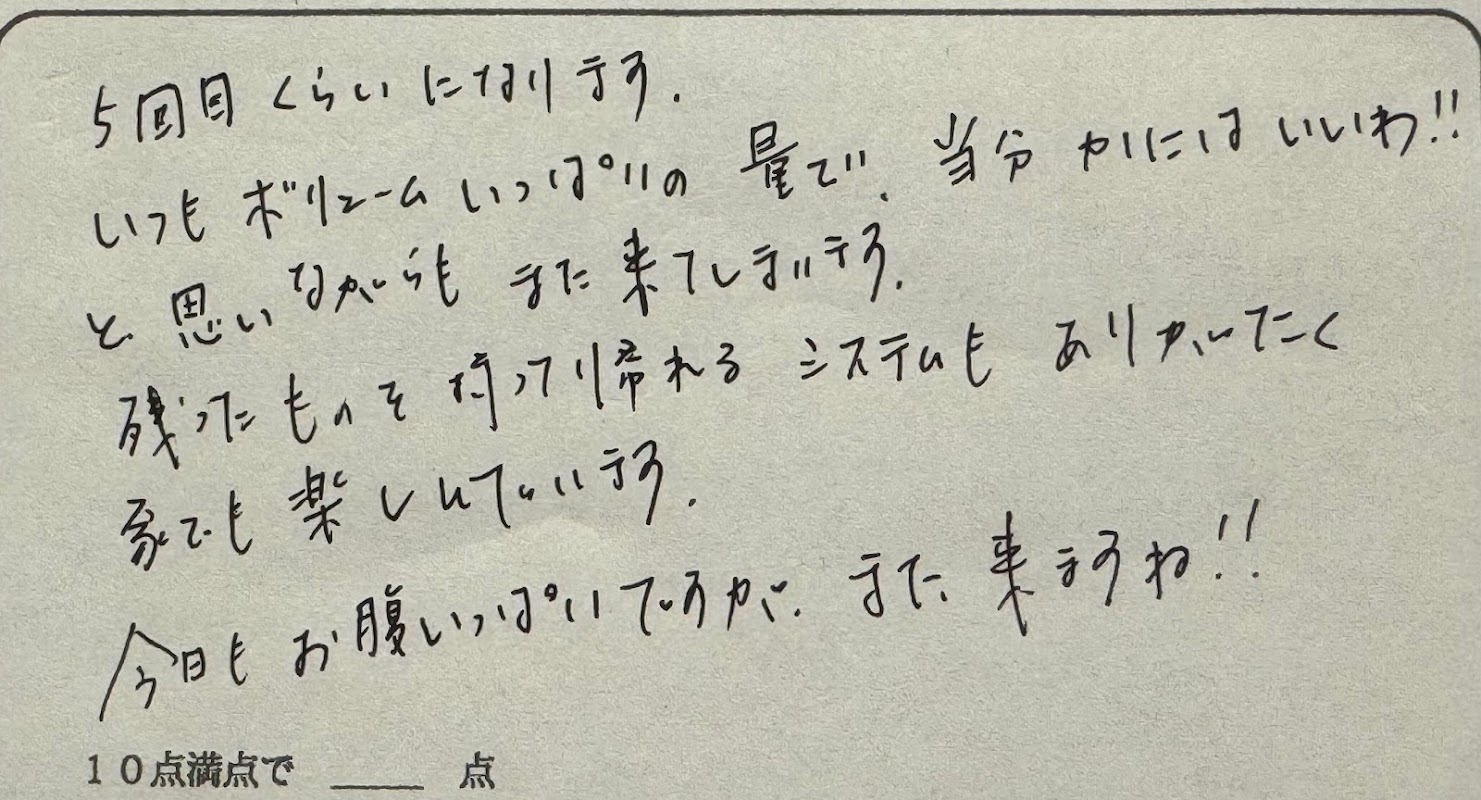 5回目くらいになります.
いつもボリュームいっぱいの量で、当分かにはいいわ!!
と思いながらもまた来てしまいます.
残ったものを持って帰れるシステムもありがたく
家でも楽しんでいます.
今日もお腹いっぱいですが、また来ますね!!
10点満点で ____ 点